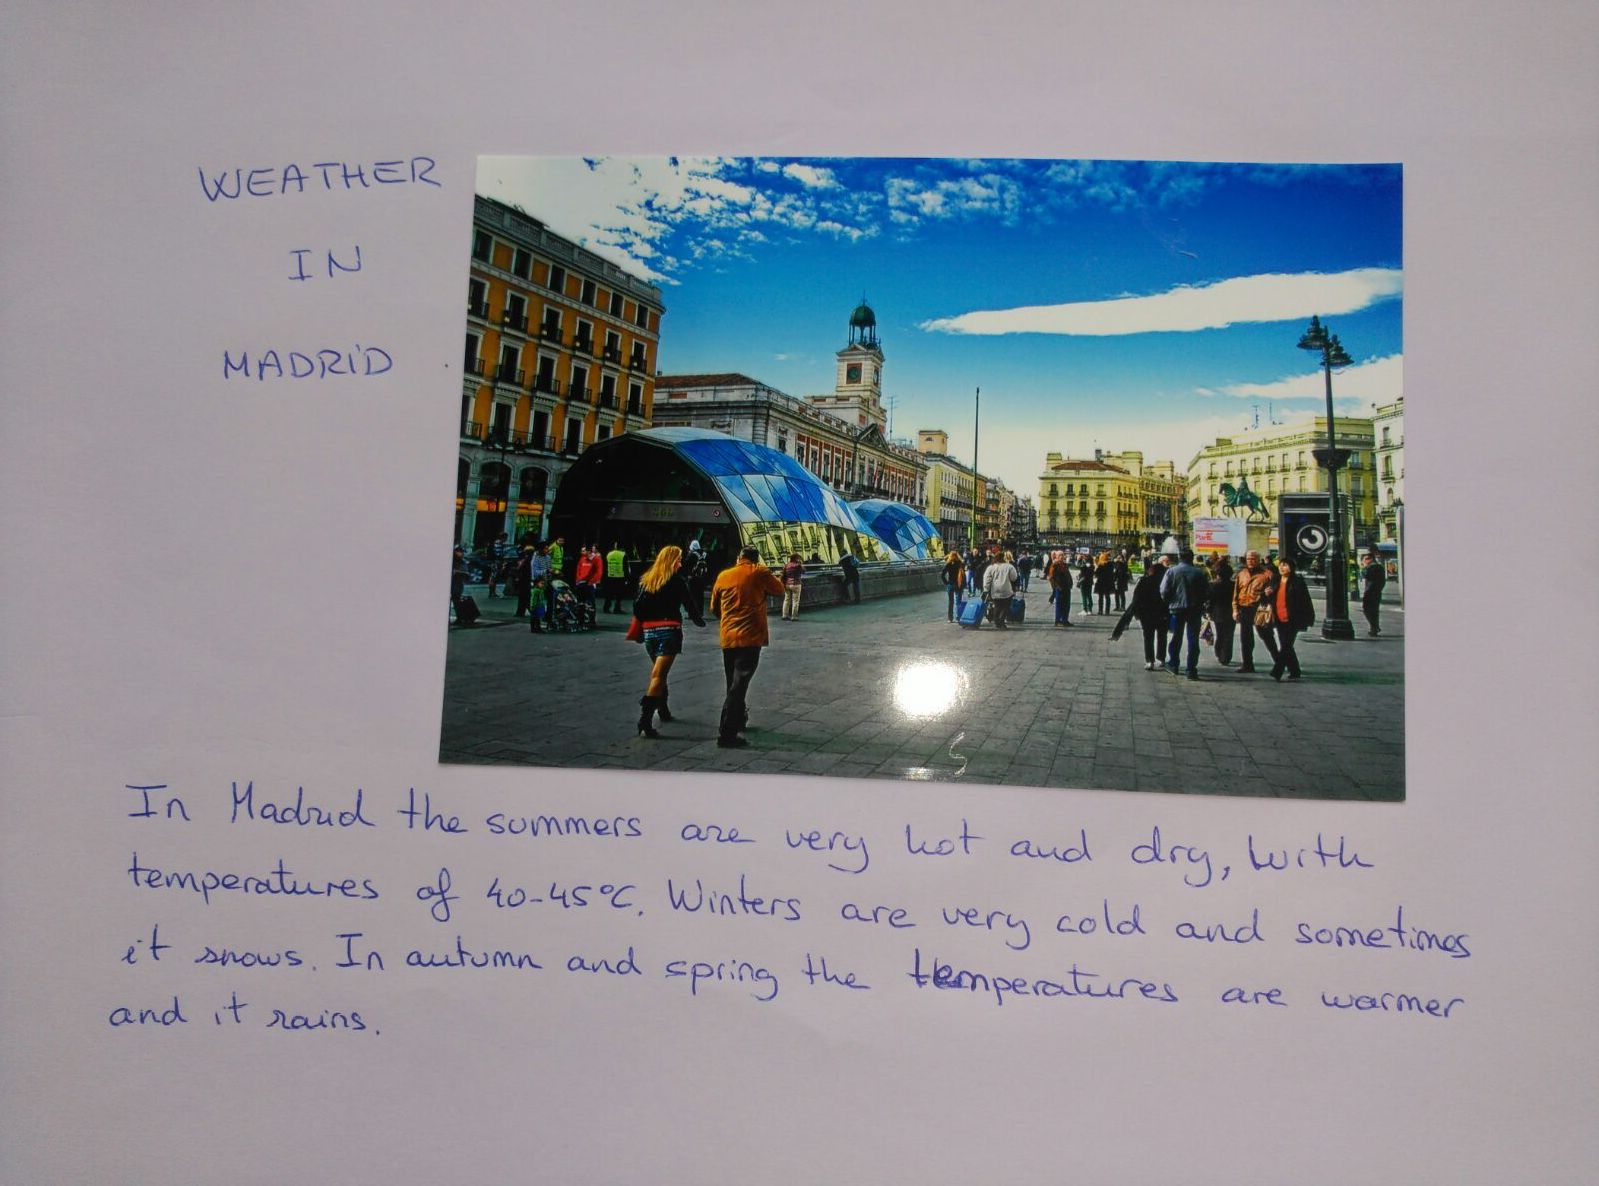 WEATHER
IN
MADRID
SOL
In Madrid the summers are very hot and dry, with
temperatures of 40-45ºC. Winters are very cold and sometimes
it snows. In autumn and spring the temperatures are warmer
and it rains.